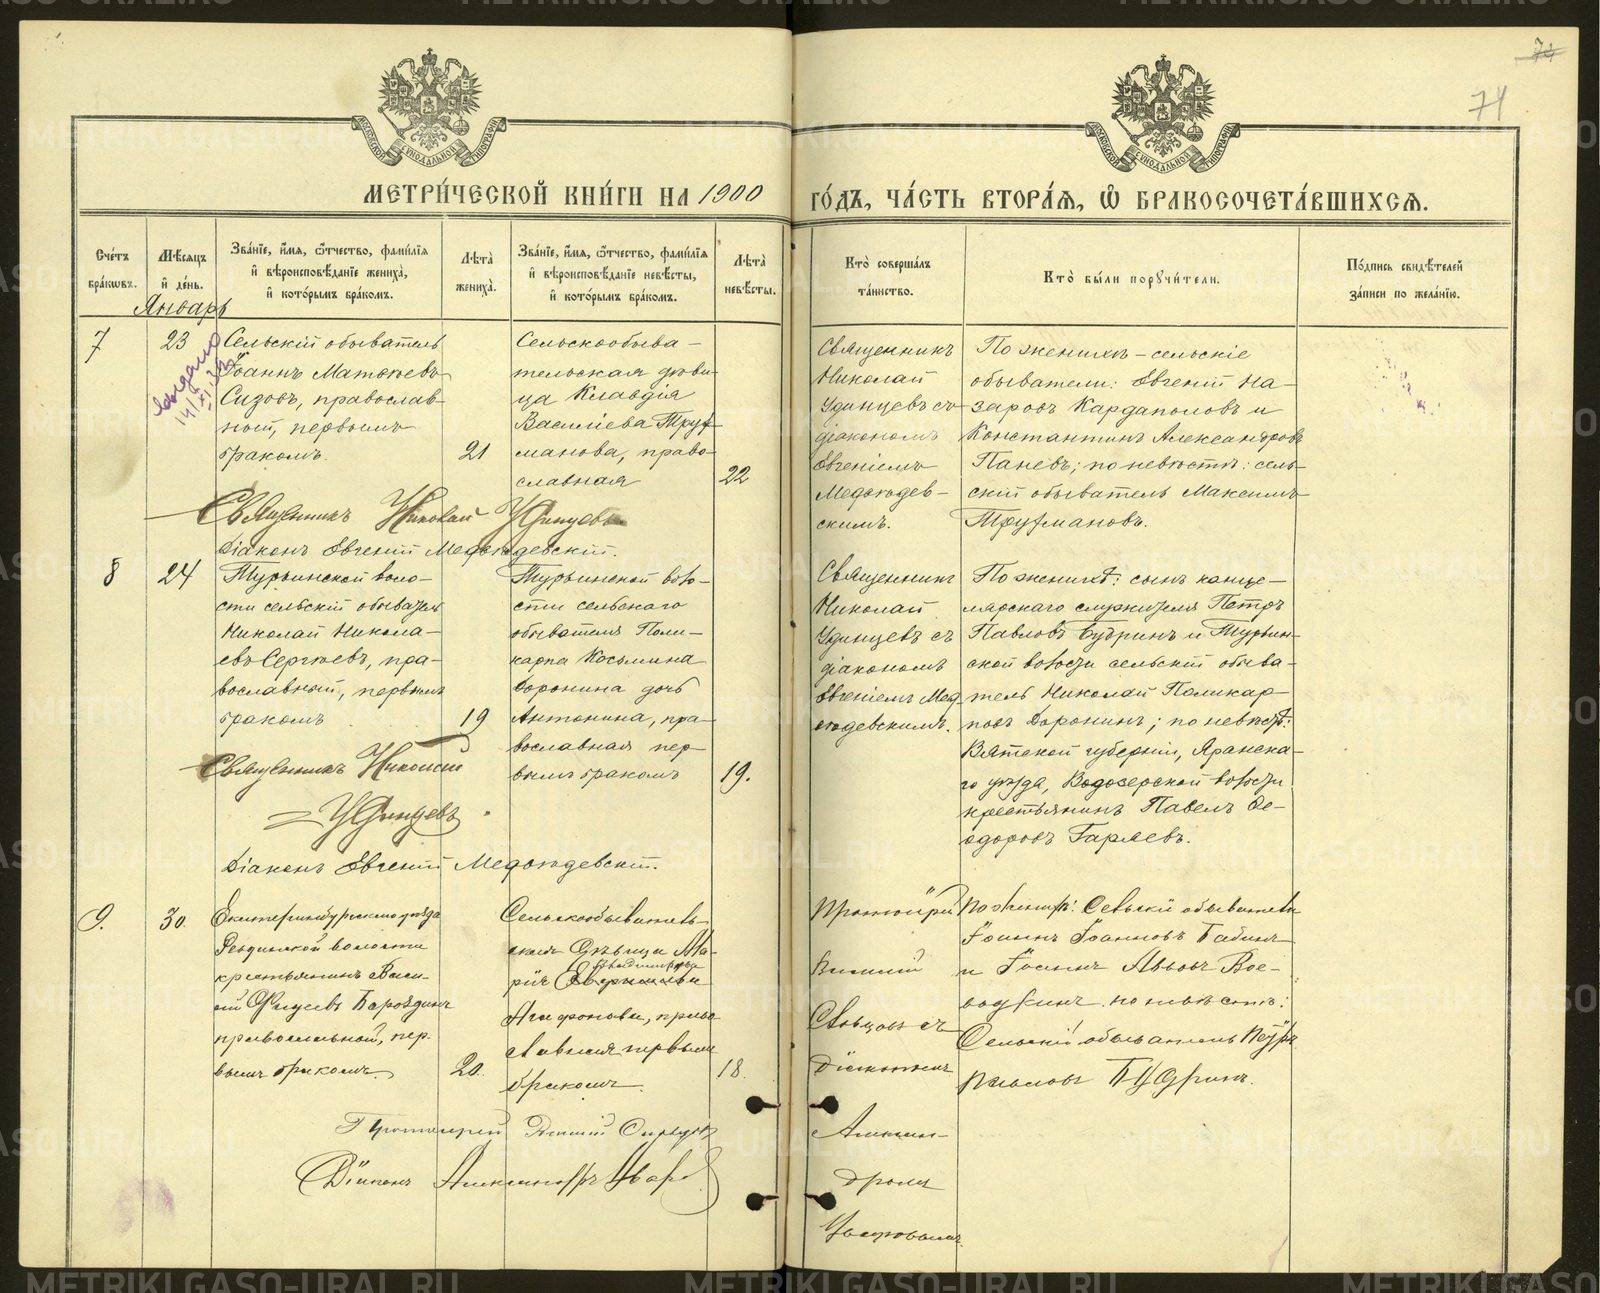 74
74
МОСКОВСКОЙ СѴНОДАЛЬНОЙ ТИПОГРАФІИ
МОСКОВСКОЙ СѴНОДАЛЬНОЙ ТИПОГРАФІИ
МЕТРИ́ЧЕСКОЙ КНИ́ГИ НА 1900 ГО́ДЪ, ЧА́СТЬ ВТОРА́Ѧ, Ѽ БРАКОСОЧЕТА́ВШИХСѦ.
Сче́тъ бра́кѡвъ.
Мѣ́сѧцъ и҆ де́нь.
Январь
Зва́нїе, и҆́мѧ, ѻ҆́тчество, фами́лїѧ
и҆ вѣроисповѣ́данїе жениха̀,
и҆ кото́рымъ бра́комъ.
Лѣ́та̀ жениха̀.
Зва́нїе, и҆́мѧ, ѻ҆́тчество, фами́лїѧ
и҆ вѣроисповѣ́данїе невѣ́сты,
и҆ кото́рымъ бра́комъ.
Лѣ́та̀ невѣ́сты.
Кто̀ соверша́лъ
та́инство.
Кто̀ бы́ли порꙋчи́тели.
По́дпись свидѣ́телей
за́писи по жела́нїю.
7
23
Выдано
Сельскій обыватель
Іоаннъ Матѳеевъ
Сизовъ, православ-
ный, первымъ
бракомъ.
21
Сельскообыва-
тельская дѣви-
ца Клавдія
Василіева Труф-
манова, право-
славная
22
Священникъ
Николай
Удинцевъ съ
діакономъ
Евгеніемъ
Медвѣдев-
скимъ.
По женихѣ - сельскіе
обыватели: Евгеній На-
заровъ Кардаполовъ и
Константинъ Александровъ
Паневъ; по невѣстѣ: сель-
скій обыватель Максимъ
Труфмановъ.
Священникъ Николай Удинцевъ
Діаконъ Евгеній Медвѣдевскій.
8
24
Турьинской воло-
сти сельскій обыватель
Николай Никола-
евъ Сергѣевъ, пра-
вославный, первымъ
бракомъ
19
Турьинской воло-
сти сельскаго
обывателя Поли-
карпа Косьмина
Доронина дочь
Антонина, пра-
вославная пер-
вымъ бракомъ
19.
Священникъ
Николай
Удинцевъ съ
діакономъ
Евгеніемъ Мед-
вѣдевскимъ.
По женихѣ: сынъ канце-
лярскаго служителя Петръ
Павловъ Бубринъ и Турьин-
ской волости сельскій обыва-
тель Николай Поликар-
повъ Доронинъ; по невѣстѣ:
Вятской губерніи, Яранска-
го уѣзда, Водозерской волости
крестьянинъ Павелъ Ѳе-
одоровъ Гаряевъ.
Священникъ Николай
Удинцевъ
Діаконъ Евгеній Медвѣдевскій.
9.
30.
Екатеринбургскаго уѣзда
Ревдинской волости
крестьянинъ Васи-
лій
православный, пер-
вымъ бракомъ.
20.
Сельскообыватель-
ская дѣвица Ма-
рія
Агафонова, право-
славная первымъ
бракомъ.
18.
Протоіерей
съ
Діакономъ
Алексан-
дромъ
Уваровымъ.
По женихѣ: Сельскій обыватель
Іоаннъ Іоанновъ Бабинъ
и Іоаннъ Львовъ Вое-
водкинъ. по невѣстѣ:
Сельскій обыватель Петръ
Павловъ Бубринъ.
Протоіерей
Діаконъ Александръ Уваровъ
METRIKI.GASO-URAL.RU